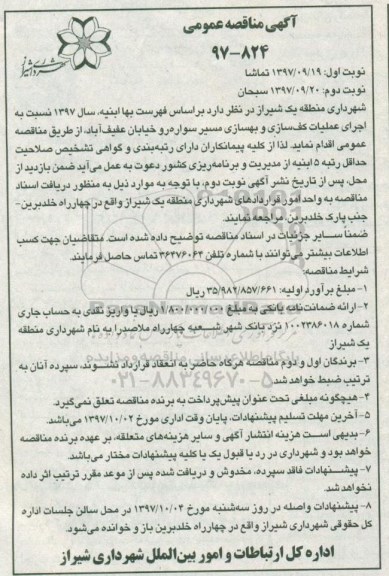 آگهی مناقصه عمومی
۹۷-۸۲۴
شهرداری شیراز
نوبت اول: ۱۳۹۷/۰۹/۱۹ تماشا
نوبت دوم: ۱۳۹۷/۰۹/۲۰ سبحان
شهرداری منطقه یک شیراز در نظر دارد براساس فهرست بها ابنیه، سال ۱۳۹۷ نسبت به
اجرای عملیات کف‌سازی و بهسازی مسیر سواره‌رو خیابان عفیف‌آباد، از طریق مناقصه
عمومی اقدام نماید. لذا از کلیه پیمانکاران دارای رتبه‌بندی و گواهی تشخیص صلاحیت
حداقل رتبه ۵ ابنیه از مدیریت و برنامه‌ریزی کشور دعوت به عمل می‌آید ضمن بازدید از
محل، پس از تاریخ نشر آگهی نوبت دوم، با توجه به موارد ذیل به منظور دریافت اسناد
مناقصه به واحد امور قراردادهای شهرداری منطقه یک شیراز واقع در چهارراه خلدبرین-
جنب پارک خلدبرین، مراجعه نمایند.
ضمناً سایر جزئیات در اسناد مناقصه توضیح داده شده است. متقاضیان جهت کسب
اطلاعات بیشتر می‌توانند با شماره تلفن ۳۶۲۷۶۰۶۲ تماس حاصل فرمایند.
شرایط مناقصه:
۱- مبلغ برآورد اولیه: ۳۵/۹۸۲/۸۵۷/۶۶۱ ریال
۲- ارائه ضمانت‌نامه بانکی به مبلغ ریال یا واریز نقدی به حساب جاری
شماره ۱۰۰۲۳۸۶۰۱۸ نزد بانک شهر شعبه چهارراه ملاصدرا به نام شهرداری منطقه
یک شیراز
۳- برندگان اول و دوم مناقصه هرگاه حاضر به انعقاد قرارداد نشوند، سپرده آنان به
ترتیب ضبط خواهد شد.
۴- هیچگونه مبلغی تحت عنوان پیش‌پرداخت به برنده مناقصه تعلق نمی‌گیرد.
۵- آخرین مهلت تسلیم پیشنهادات، پایان وقت اداری مورخ ۱۳۹۷/۱۰/۰۲ می‌باشد.
۶- بدیهی است هزینه انتشار آگهی و سایر هزینه‌های متعلقه، بر عهده برنده مناقصه
خواهد بود و شهرداری در رد یا قبول یک یا کلیه پیشنهادات مختار می‌باشد.
۷- پیشنهادات فاقد سپرده، مخدوش و دریافت شده پس از موعد مقرر ترتیب اثر داده
نخواهد شد.
۸- پیشنهادات واصله در روز سه‌شنبه مورخ ۱۳۹۷/۱۰/۰۴ در محل سالن جلسات اداره
کل حقوقی شهرداری شیراز واقع در چهارراه خلدبرین باز و خوانده می‌شود.
اداره کل ارتباطات و امور بین‌الملل شهرداری شیراز
۰۲۱-۸۸۳۴۹۶۷۰-۵